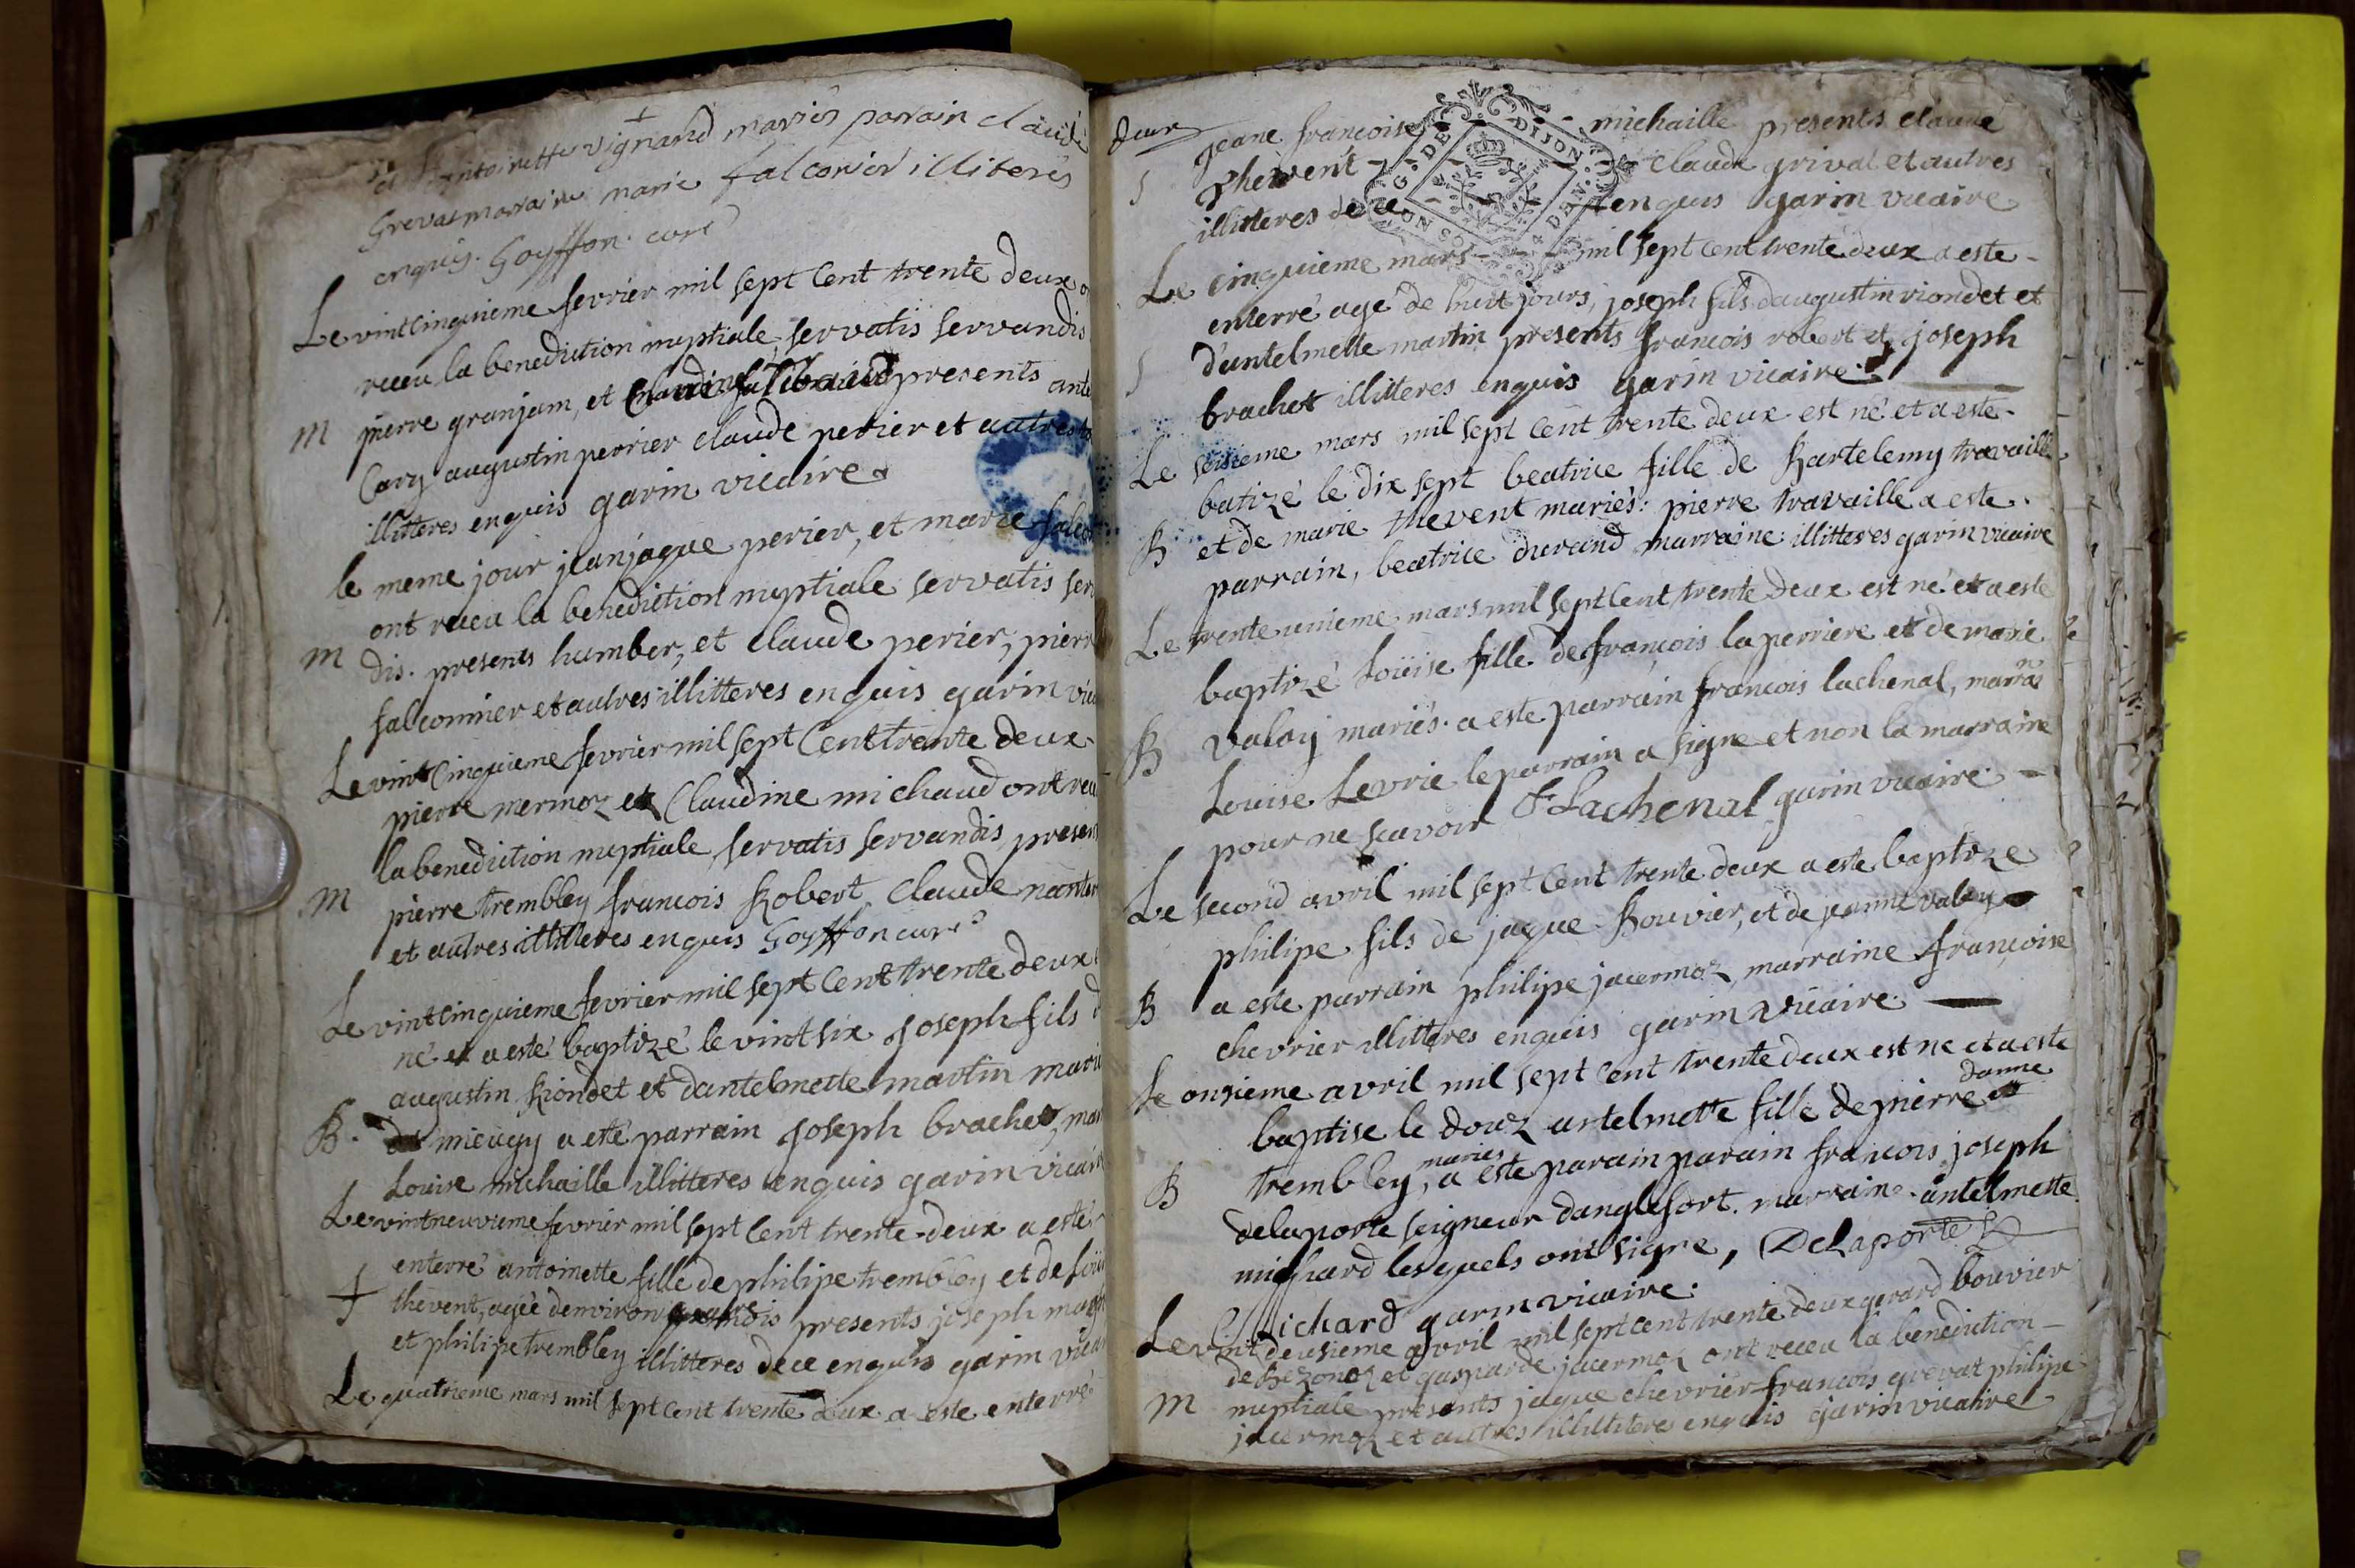 et antoinette vignand mariés parrain claude
Grevat marraine marie falconier illiterés
enquis. Goyffon curé
Le vintcinquieme fevrier mil sept Cent trente deux o
receu la benediction nuptiale, servatis servandis
M pierre granjam, et presents ante
Cary augustin perrier claude perier et autres
illitteres enquis garin vicaire
le meme jour jeanjaque perier, et marie falco
ont receu la benediction nuptiale servatis ser
M dis. presents humber, et claude perier, pierr
falconnier et autres illitteres enquis garin vica
Le vintcinquieme fevrier mil sept Cent trente deux
pierre mermoz et Claudine michaud ont receu
la benediction nuptiale servatis servandis, presen
M pierre trembley francois Robert, Claude nanter
et autres illitteres enquis Goyffon curé
Le vintcinquieme fevrier mil sept Cent trente deux
né et a esté baptizé le vint six joseph fils d
augustin Riondet et dantelmette martin marié
B. de mieugy a eté parrain joseph brachet, mar
Louise michaille illitteres enquis garin vicair
Le vintneuvieme fevrier mil sept Cent trente-deux a esté
enterré antoinette fille de philipe trembley et de
thevent, agée denviron mois presents joseph
et philipe trembley illitteres de ce enquis garin vicai
Le quatrieme mars mil sept cent trente deux a este enterré
deux
jeane francoise michaille presents claude
thevent claude grival et autres
illitteres de ce enquis garin vicaire
G. DE DIJON
Le cinquieme mars mil sept cent trente deux a este
enterré agé de huit jours, joseph fils daugustin riondet et
d'antelmette martin presents francois robert et joseph
brachet illitteres enquis garin vicaire
Le seisieme mars mil sept cent trente deux est né et a este
batizé le dix sept beatrice fille de Bartelemy travaille
B et de marie thevent mariés: pierre travaille a este
parrain, beatrice durand marraine illitteres garin vicaire
Le trente unieme mars mil sept Cent trente deux est né et a este
baptizé Loüise fille de françois la perriere et de marie
B valay mariés. a este parrain francois lachenal, marrai ne
Louise Levrie le parrain a signe et non la marraine
pour ne scavoir F Lachenal garin vicaire
Le second avril mil sept Cent trente deux a este baptize
philipe fils de jaque Bouvier, et de jeanne valay
B a este parrain philipe jacermoz, marraine françoise
chevrier illitteres enquis garin vicaire
Le onsieme avril mil sept Cent trente deux est ne et a este
baptise le douz antelmette fille de pierre et danne
B trembley, mariés a este parain parain francois joseph
delaporte seigneur danglefort. marraine. antelmette
michard lesquels ont signe, DeLaporte
Michard garin vicaire.
Le vint deusieme avril mil sept cent trente deux gerard bouvier
de Bezonoz et gasparde jacermoz ont receu la benediction
M nuptiale presents jaque chevrier francois grevat philipe
jacermoz et autres illitteres enquis garin vicaire